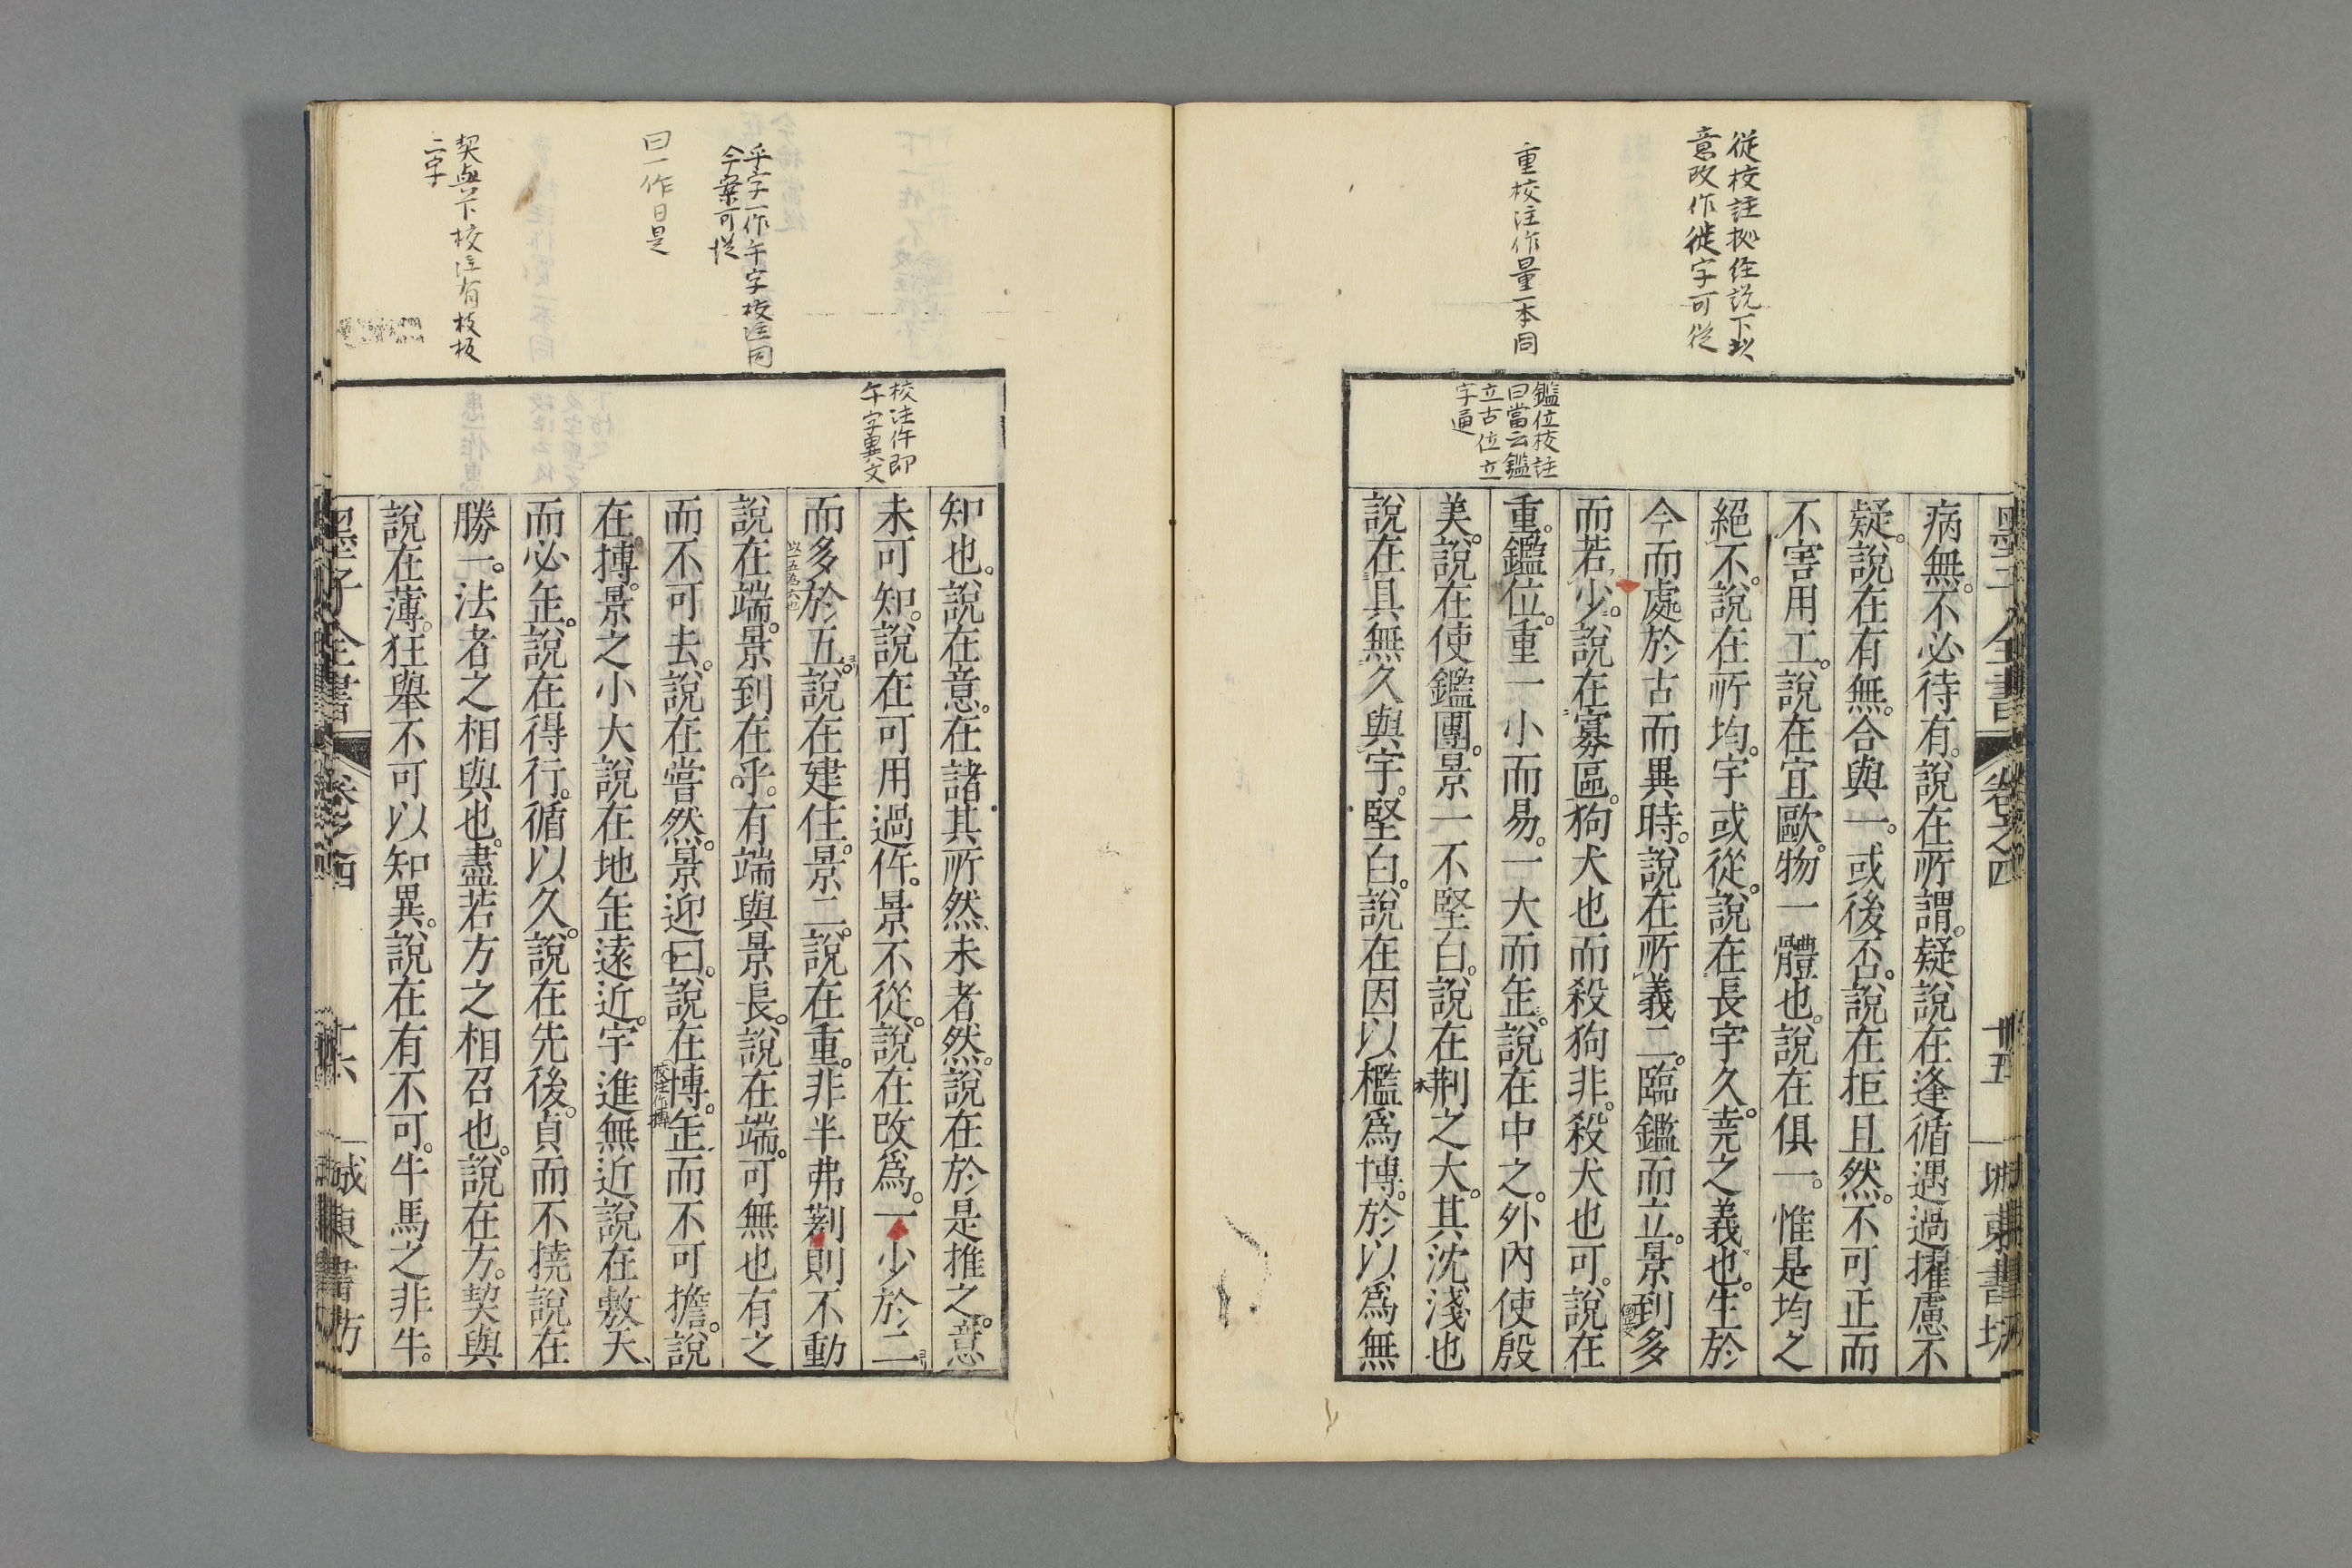 從校註拠経説下以
意改作徙字可従
重校注作量一本同
鑑位校註
曰當云鑑
立古位立
字通
墨子全書
卷之四
廿五
城東書坊
病無。不必待有。說在所謂。疑說在逢循遇過擢慮不
疑。說在有無。合與一。或後否。說在拒且然。不可正而
不害用工。說在宜歐。物一體也。說在俱一。惟是均之
絕不。說在所均。宇或從。說在長宇久。堯之義也。生於
今而處於古而異時。說在所義二。臨鑑而立。景到多
而若少。說在寡區。狗犬也而殺狗非。殺犬也可。說在
重。鑑位。重一小而易。一大而缶。說在中之。外內使殷
美。說在使鑑團。景一不堅白。說在荆之大。其沈淺也
說在具無久與宇。堅白。說在因以檻爲博。於以爲無
乎字一作午字校注同
今案可従
曰一作日是
契與下校注有枝板
二字
校注仵即
午字異文
知也。說在意。在諸其所然未者然。說在於是推之。意
未可知。說在可用過仵。景不從。說在改爲。一少於二
而多於五。說在建住。景二。說在重。非半弗𣂪則不動
以一五爲六也
說在端。景到在乎。有端與景長。說在端。可無也有之
而不可去。說在嘗然。景迎曰。說在博。缶而不可擔。說
校注作摶
在摶。景之小大說在地缶遠近。宇進無近說在敷天、
而必缶。說在得行。循以久。說在先後。貞而不撓說在
勝一。法者之相與也。盡若方之相召也。說在方。契與
說在薄。狂舉不可以知異。說在有不可。牛馬之非牛。
墨子全書
卷之四
廿六
城東書坊